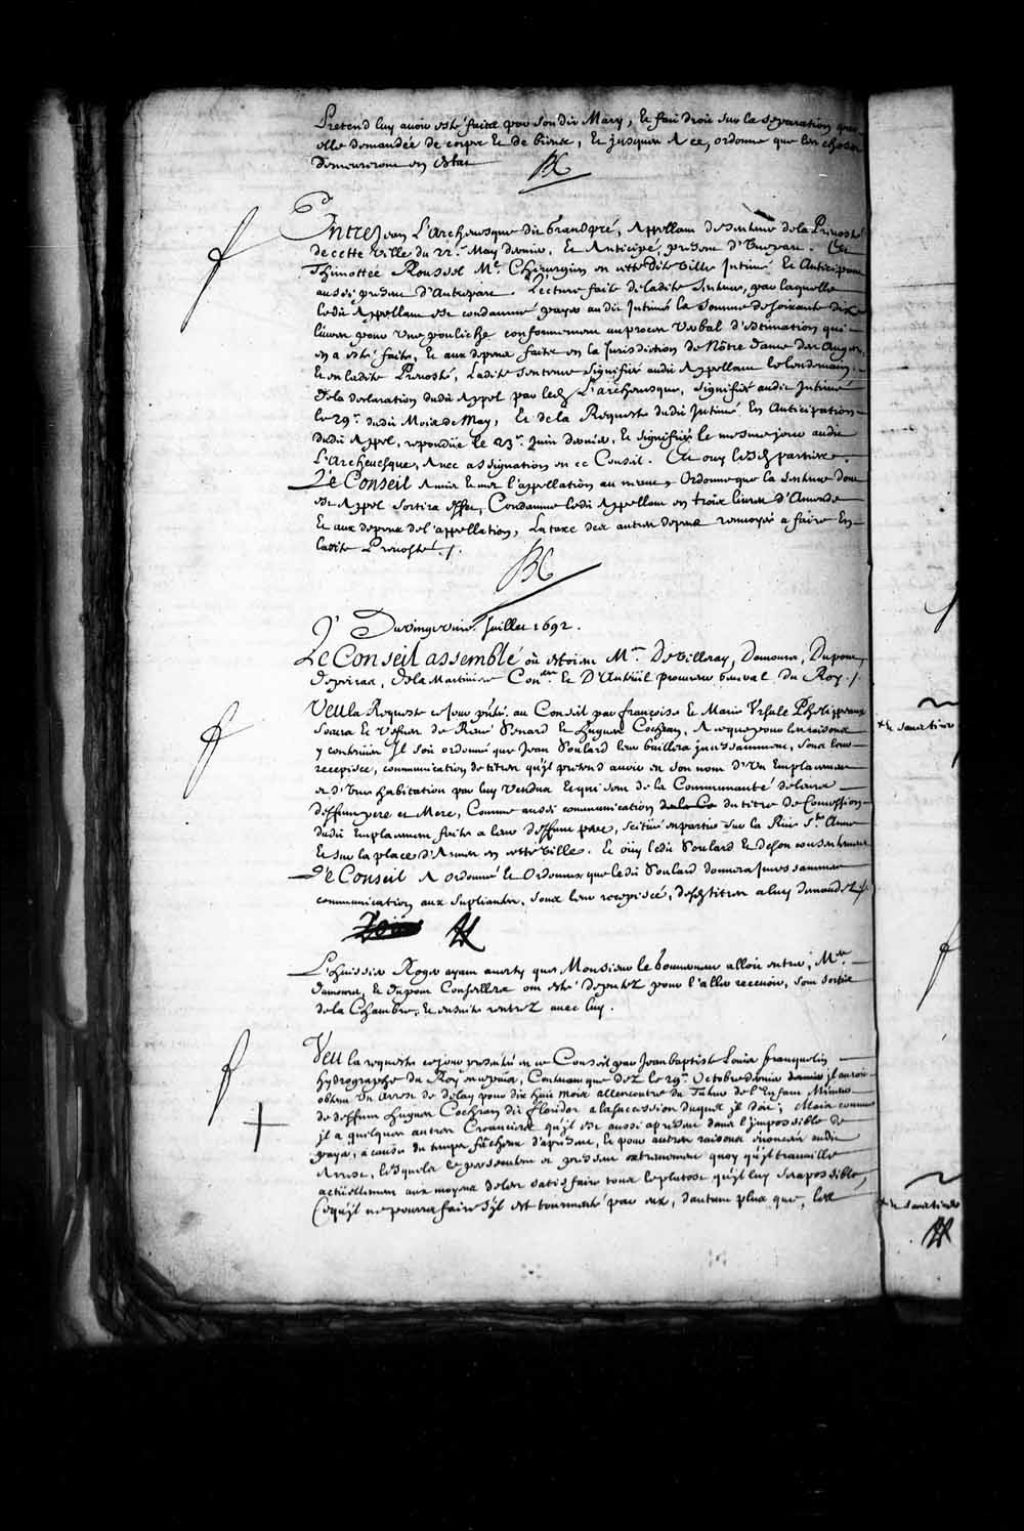 Pretend luy avoir esté faite par son dit Mary, Et fait droit sur la Separation par
elle demandée de corps Et de biens, Et jusques A ce, ordonne que les choses
demeureront en Estat
Entre Jean L'Archevesque dit Grandpré, Appellant de sentence de la Prevosté
de cette ville du 22e. May dernier, Et Anticipé, present d'Unepart. Et
Thimottée Roussel Me. Chirurgien en cette dite ville Intimé Et Anticipant
aussi present d'Autrepart. Lecture faite de ladite Sentence, par laquelle
ledit Appellant est condamné payer audit Intimé la somme de soixante dix
livres pour Une pouliche conformement au procez Verbal d'estimation qui
en a esté faite, Et aux depens faits en la Jurisdiction de Nôtre dame des Anges,
Et en ladite Prevosté, Ladite Sentence signifiée audit Appellant le lendemain,
De la declaration dudit Appel par ledt. L'archevesque, signifiée audit Intimé
le 29e. dudit Mois de May, Et de la Requeste dudit Intimé En Anticipation
dudit Appel, repondüe le 23e. Juin dernier, Et signifiée le mesme jour audit
L'Archevesque, Avec assignation en ce Conseil. Et ouy lesdt. parties.
Le Conseil A mis Et met l'appellation au neant, Ordonne que la sentence dont
est Appel sortira effet, Condamne ledit Appellant en trois livres d'Amende
Et aux depens de l'appellation, La taxe des autres depens renvoyée a faire En
ladite Prevosté ./.
Du vingt unie. Juillet 1692.
Le Conseil assemblé où estoient Mrs. De Villeray, Damours, Dupont,
Depeiras, De la Martiniere Coners. Et D'Auteüil procureur general du Roy ./.
Veu la Requeste ce jour prñtée au Conseil par françoise Et Marie Ursule Phelippeaux
Soeurs Et Veufves de René Senard Et Hugues Cochran, A ce que pour les raisons
y contenües Il soit ordonné que Jean Soulard leur baillera jncessamment, sous leur
recepissé, communication de titres qu'jl pretend avoir en son nom d'Un Emplacement
et d'Une habitation par luy Vendus Et qui sont de la Communauté de leurs
deffunts pere et Mere, Comme aussi communication de la Co du titre de Concession
dudit Emplacement faite a leur deffunt pere, scitüé en partie sur la Rüe Ste. Anne
Et sur la place d'Armes en cette ville. Et oüy ledit Soulard Et de son consentement
Le Conseil A ordonné Et Ordonne que ledit Soulard donnera jncessamment
communication aux supliantes, sous leur recepissé, desdt. titres a luy demandez ./.
L'huissier Roger ayant averty que Monsieur le Gouverneur alloit entrer, Mrs.
Damours, Et Dupont Conseillers ont esté deputez pour l'aller recevoir, sont sortis
de la Chambre, Et ensuite rentrez avec luy.
Veu la requeste ce jour presentée en ce Conseil par Jean baptiste Louis franquelin
hydrographe du Roy en ce païs, Contenant que dez le 29e. Octobre dernier dernier jl auroit
obtenu Un Arrest de delay pour dix huit mois allencontre du Tuteur de l'Enfant Mineur
de deffunt Hugues Cochran dit floridor a la succession duquel jl doit; Mais comme
jl a quelques autres Creanciers qu'jl est aussi apresent dans l'jmpossible de
payer, a cause du temps fâcheux d'apresent, Et pour autres raisons enoncées audit
Arrest, lesquels le pressent extremement quoy qu'jl travaille
actüellement aux moyens de les satisfaire tous le plutost qu'jl luy sera possible,
Ce qu'jl ne pourra faire s'jl est tourmenté par eux, d'autant plus que, les